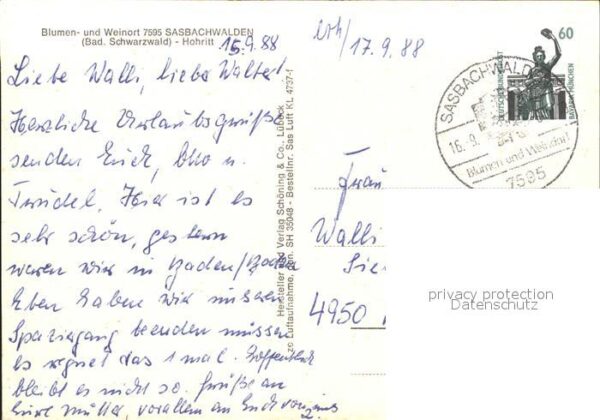 Blumen- und Weinort 7595 SASBACHWALDEN
(Bad. Schwarzwald) - Hohritt
15.9.88
erh/17.9.88
Liebe Walli, lieber Walter!
Herzliche Urlaubsgrüße
senden Euch, Otto u.
Trudel. Hier ist es
sehr schön, gestern
waren wir in Baden/Baden
Eben haben wir unseren
Spaziergang beenden müssen
es regnet das 1 mal. Hoffentlich
bleibt es nicht so. Grüße an
Eure Mutter, vorallem an Euch von uns
Hersteller Verlag Schöning & Co., Lübeck
Luftaufnahme, SH 35048 - Bestellnr. Sas Luft KL 4737-1
Frau
Walli
4950
60
DEUTSCHE BUNDESPOST
BAVARIA MÜNCHEN
SASBACHWALDEN
16.9.
Blumen und Weindorf
7595
privacy protection
Datenschutz